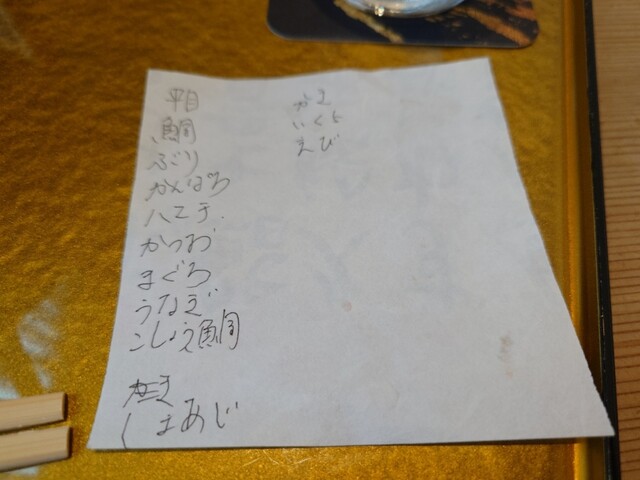 平目
鯛
ぶり
かんぱち
ハマチ
かつお
まぐろ
うなぎ
こしょう鯛
しまあじ
かま
いくら
えび